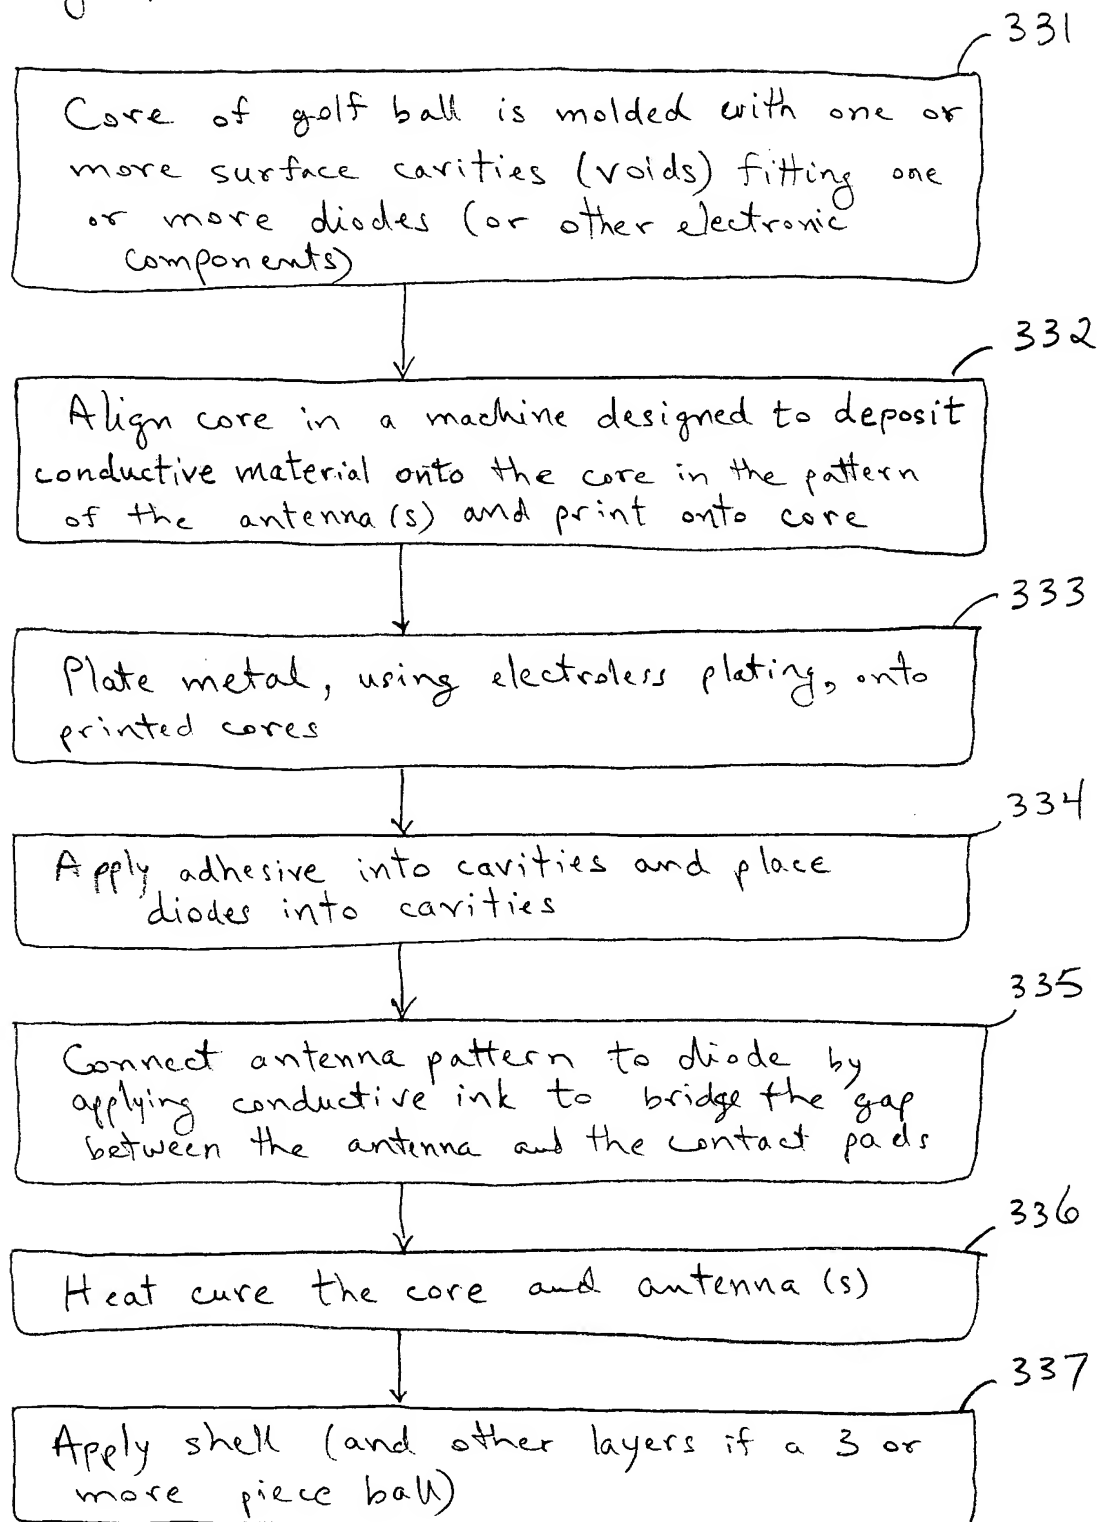 331
Core of golf ball is molded with one or
more surface cavities (voids) fitting one
or more diodes (or other electronic
components)
332
Align core in a machine designed to deposit
conductive material onto the core in the pattern
of the antenna(s) and print onto core
333
Plate metal, using electroless plating, onto
printed cores
334
Apply adhesive into cavities and place
diodes into cavities
335
Connect antenna pattern to diode by
applying conductive ink to bridge the gap
between the antenna and the contact pads
336
Heat cure the core and antenna (s)
337
Apply shell (and other layers if a 3 or
more piece ball)